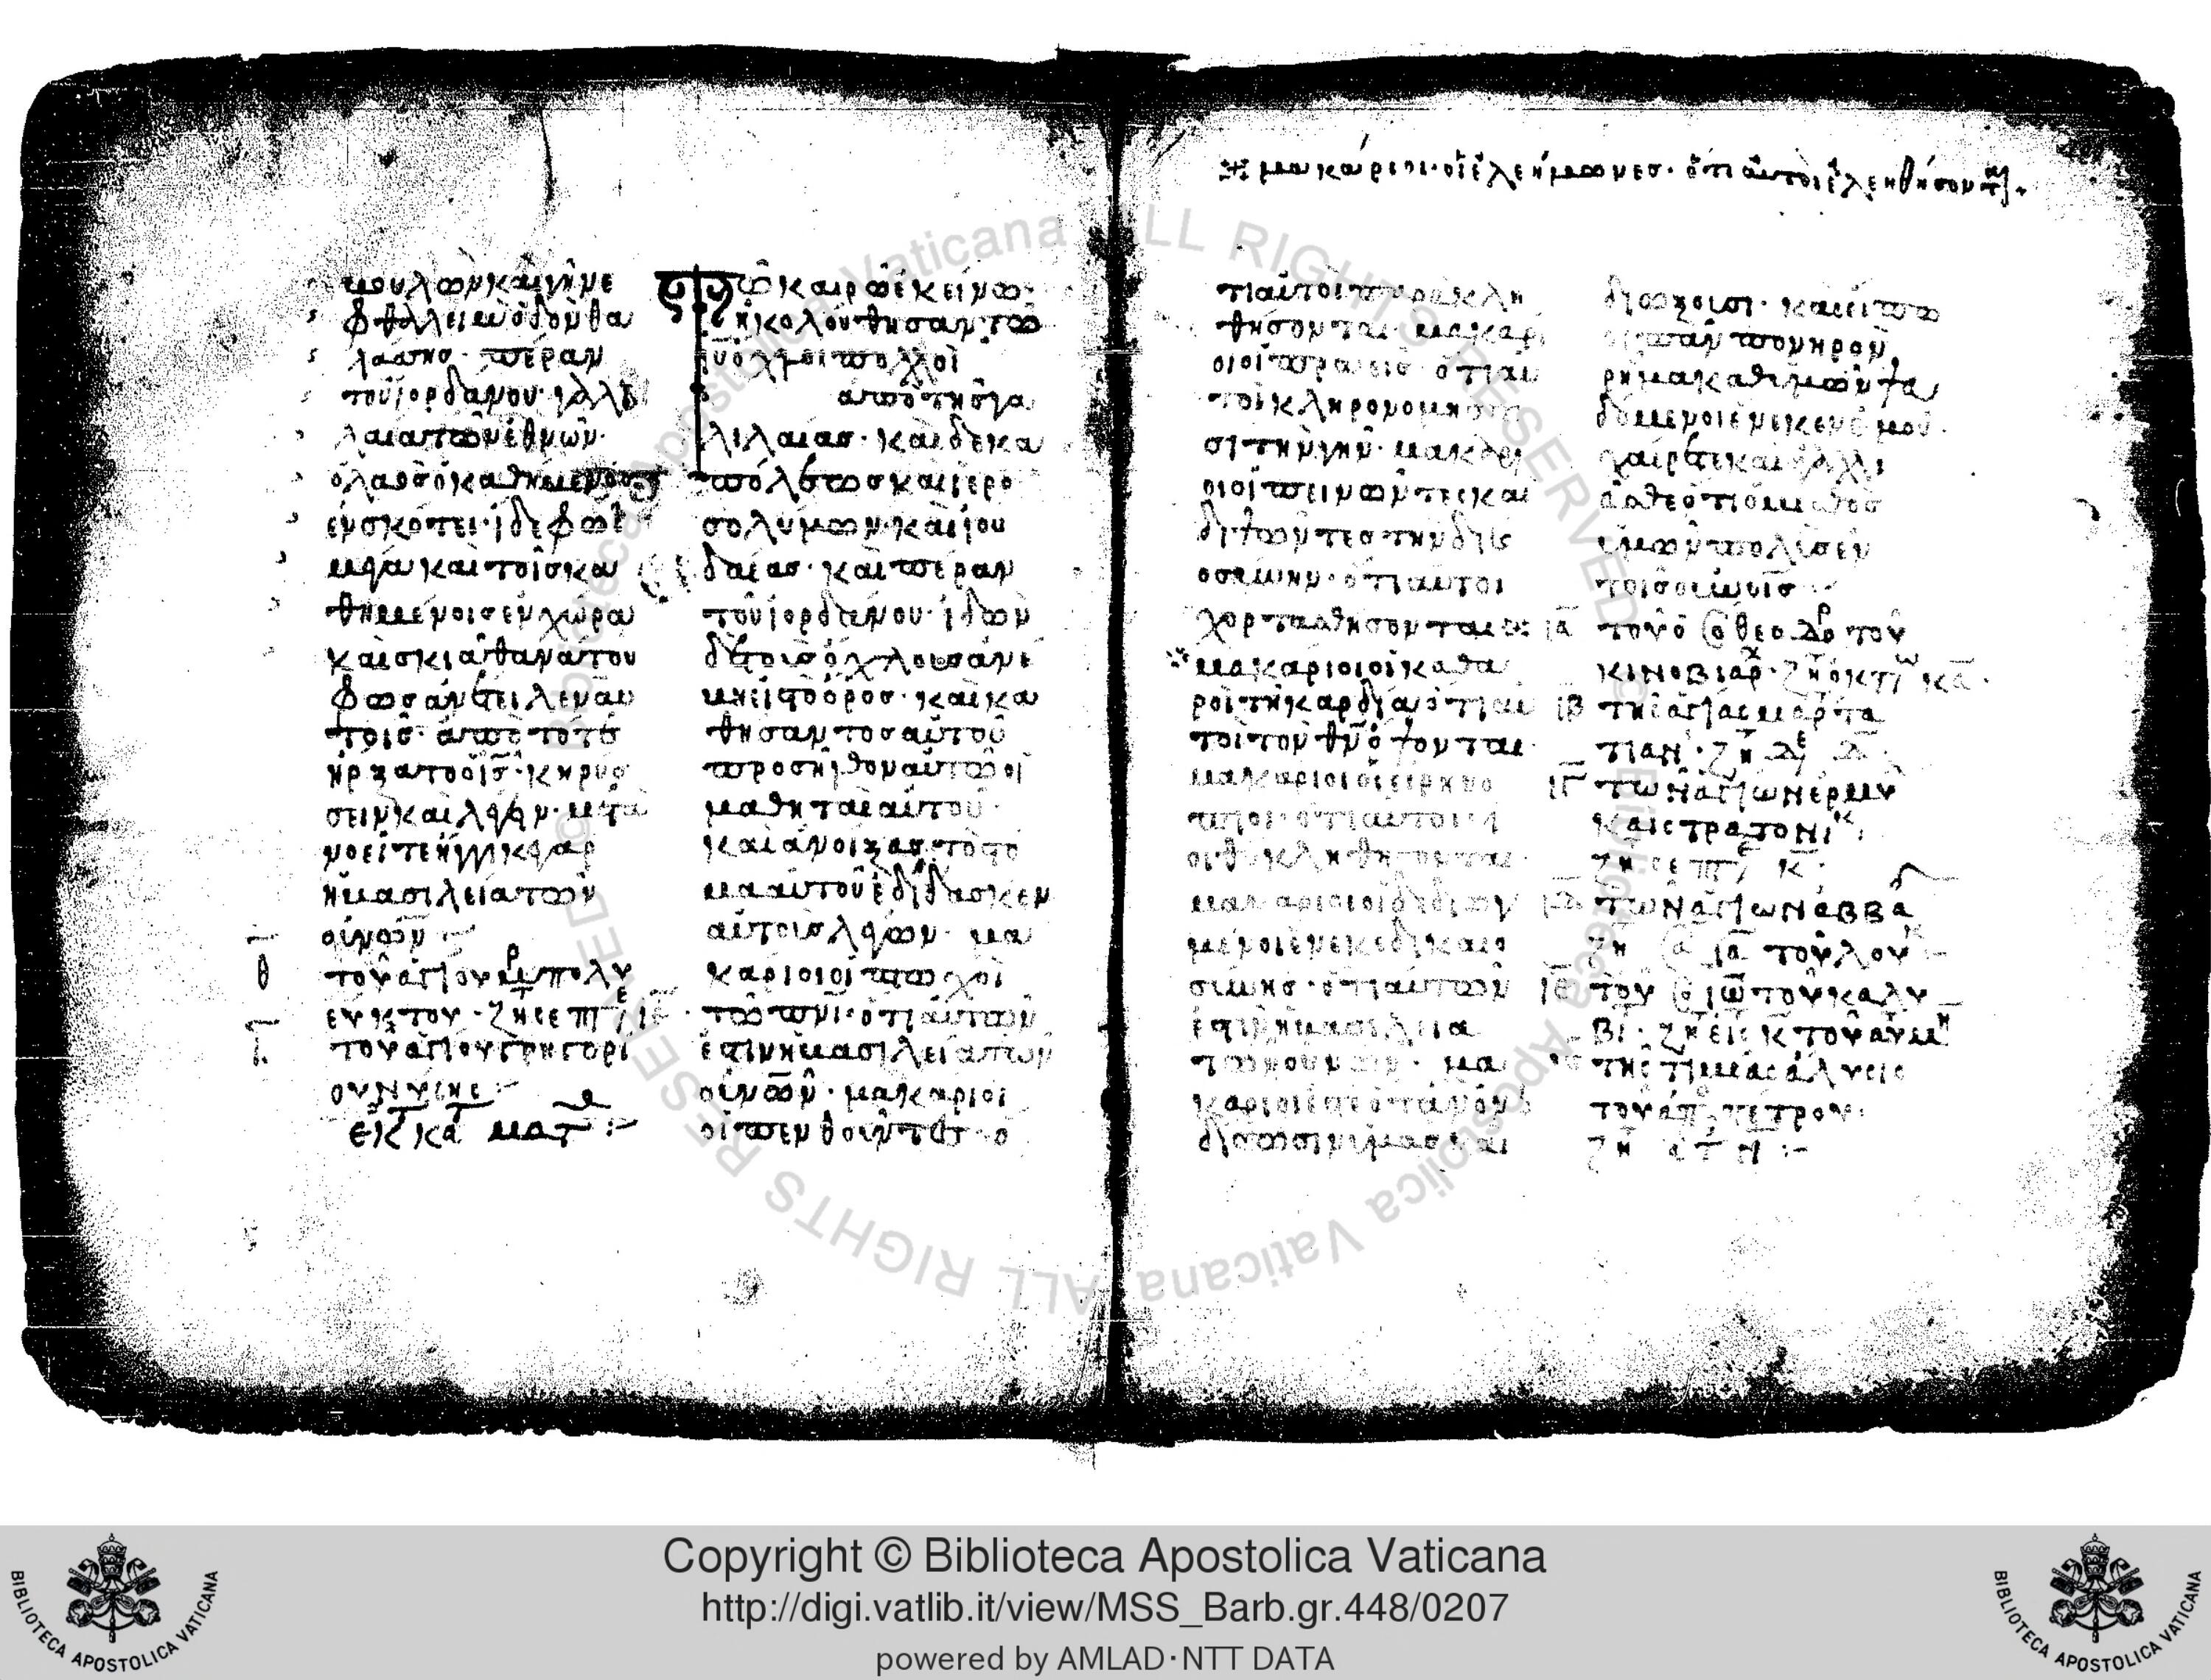 βουλὼν καὶ γῆ νε
φθαλλεὶμ ὁδὸν θα
λάσσης· πέραν
τοῦ ἰορδάνου· γαλι
λαία τῶν ἐθνῶν·
ὁ λαὸς ὁ καθήμενος
ἐν σκότει· ἴδε φῶς
μέγα καὶ τοῖς κα
θημένοις ἐν χώρα
καὶ σκιᾶ θανάτου
φῶς ἀνέτειλεν αὐ
τοῖς· ἀπὸ τότε
ἤρξατο ὁ ις κηρύσ
σειν καὶ λέγειν· μετα
νοεῖτε ἤγγικε γὰρ
ἡ βασιλεία τῶν
οὐνῶν
θ τοῦ ἁγίου μρ πολυ
εύκτου· ζη σεπτ ιε
ι τοῦ ἁγίου γρηγορί
ου νύσης
εἰς κα ματ
Τῶ καιρῶ ἐκείνω
ἠκολούθησαν τῶ
ιυ ὄχλοι πολλοὶ
ἀπὸ τῆς γα
λιλαίας· καὶ δεκα
πόλεως καὶ ἱερο
σολύμων· καὶ ἰου
δαίας· καὶ πέραν
τοῦ ἰορδάνου· ἰδὼν
δὲ τοὺς ὄχλους ἀνέ
βη εἰς τὸ ὄρος· καὶ κα
θήσαντος αὐτοῦ
προσῆλθον αὐτῶ οἱ
μαθηταὶ αὐτοῦ·
καὶ ἀνοίξας τὸ στό
μα αὐτοῦ ἐδίδασκεν
αὐτοὺς λέγων· μα
κάριοι οἱ πτωχοὶ
τῶ πνι· ὅτι αὐτῶν
ἐστὶν ἡ βασιλεία τῶν
οὐνῶν· μακάριοι
οἱ πενθοῦντες· ὅ
※ μακάριοι· οἱ ἐλεήμωνες· ὅτι αὐτοὶ ἐλεηθήσονται·
τι αὐτοὶ παρακλη
θήσονται· μακάρι
οι οἱ πραεῖς· ὅτι αὐ
τοὶ κληρονομήσου
σι τὴν γῆν· μακάρι
οι οἱ πεινῶντες καὶ
διψῶντες τὴν δικαι
οσύνην· ὅτι αὐτοὶ
χορτασθήσονται
※ μακάριοι οἱ καθα
ροὶ τῆ καρδία· ὅτι αὐ
τοὶ τὸν θν ὄψονται·
μακάριοι οἱ εἰρηνο
ποιοὶ· ὅτι αὐτοὶ υἱ
οὶ θυ κληθήσονται·
μακάριοι οἱ δεδιωγ
μένοι ἕνεκε δικαιο
σύνης· ὅτι αὐτῶν
ἐστὶν ἡ βασιλεία
τῶν οὐνῶν· μα
κάριοί ἐστε ὅταν ὀνει
δίσωσιν ὑμᾶς καὶ
διώξουσι· καὶ εἴπω
σι πᾶν πονηρὸν
ρῆμα καθ᾽ ὑμῶν ψευ
δόμενοι ἕνεκεν ἐμοῦ·
χαίρετε καὶ ἀγαλλι
ᾶσθε ὅτι ὁ μισθὸς
ὑμῶν πολὺς ἐν
τοῖς οὐνοῖς
ια τοῦ ὁσ θεοδρ τοῦ
κινοβιαρχ· ζη ὀκτω κα·
ιβ τῆς ἁγίας μαρτ τα
τιαν· ζη δε δ
ιγ τῶν ἁγίων ἑρμυ
καὶ στρατονικ
ζη σεπτ κ
ιδ τῶν ἁγίων ἀββα
ζη ια τοῦ λουκ
ιε τοῦ ὁσ ιω τοῦ καλυ
βι· ζη εἰς κ τοῦ αὐ μη
ις τῆς τιμίας ἁλύσεως
τοῦ ἀπ πέτρου·
ζη
Copyright © Biblioteca Apostolica Vaticana
http://digi.vatlib.it/view/MSS_Barb.gr.448/0207
powered by AMLAD·NTT DATA
BIBLIOTECA APOSTOLICA VATICANA
BIBLIOTECA APOSTOLICA VATICANA